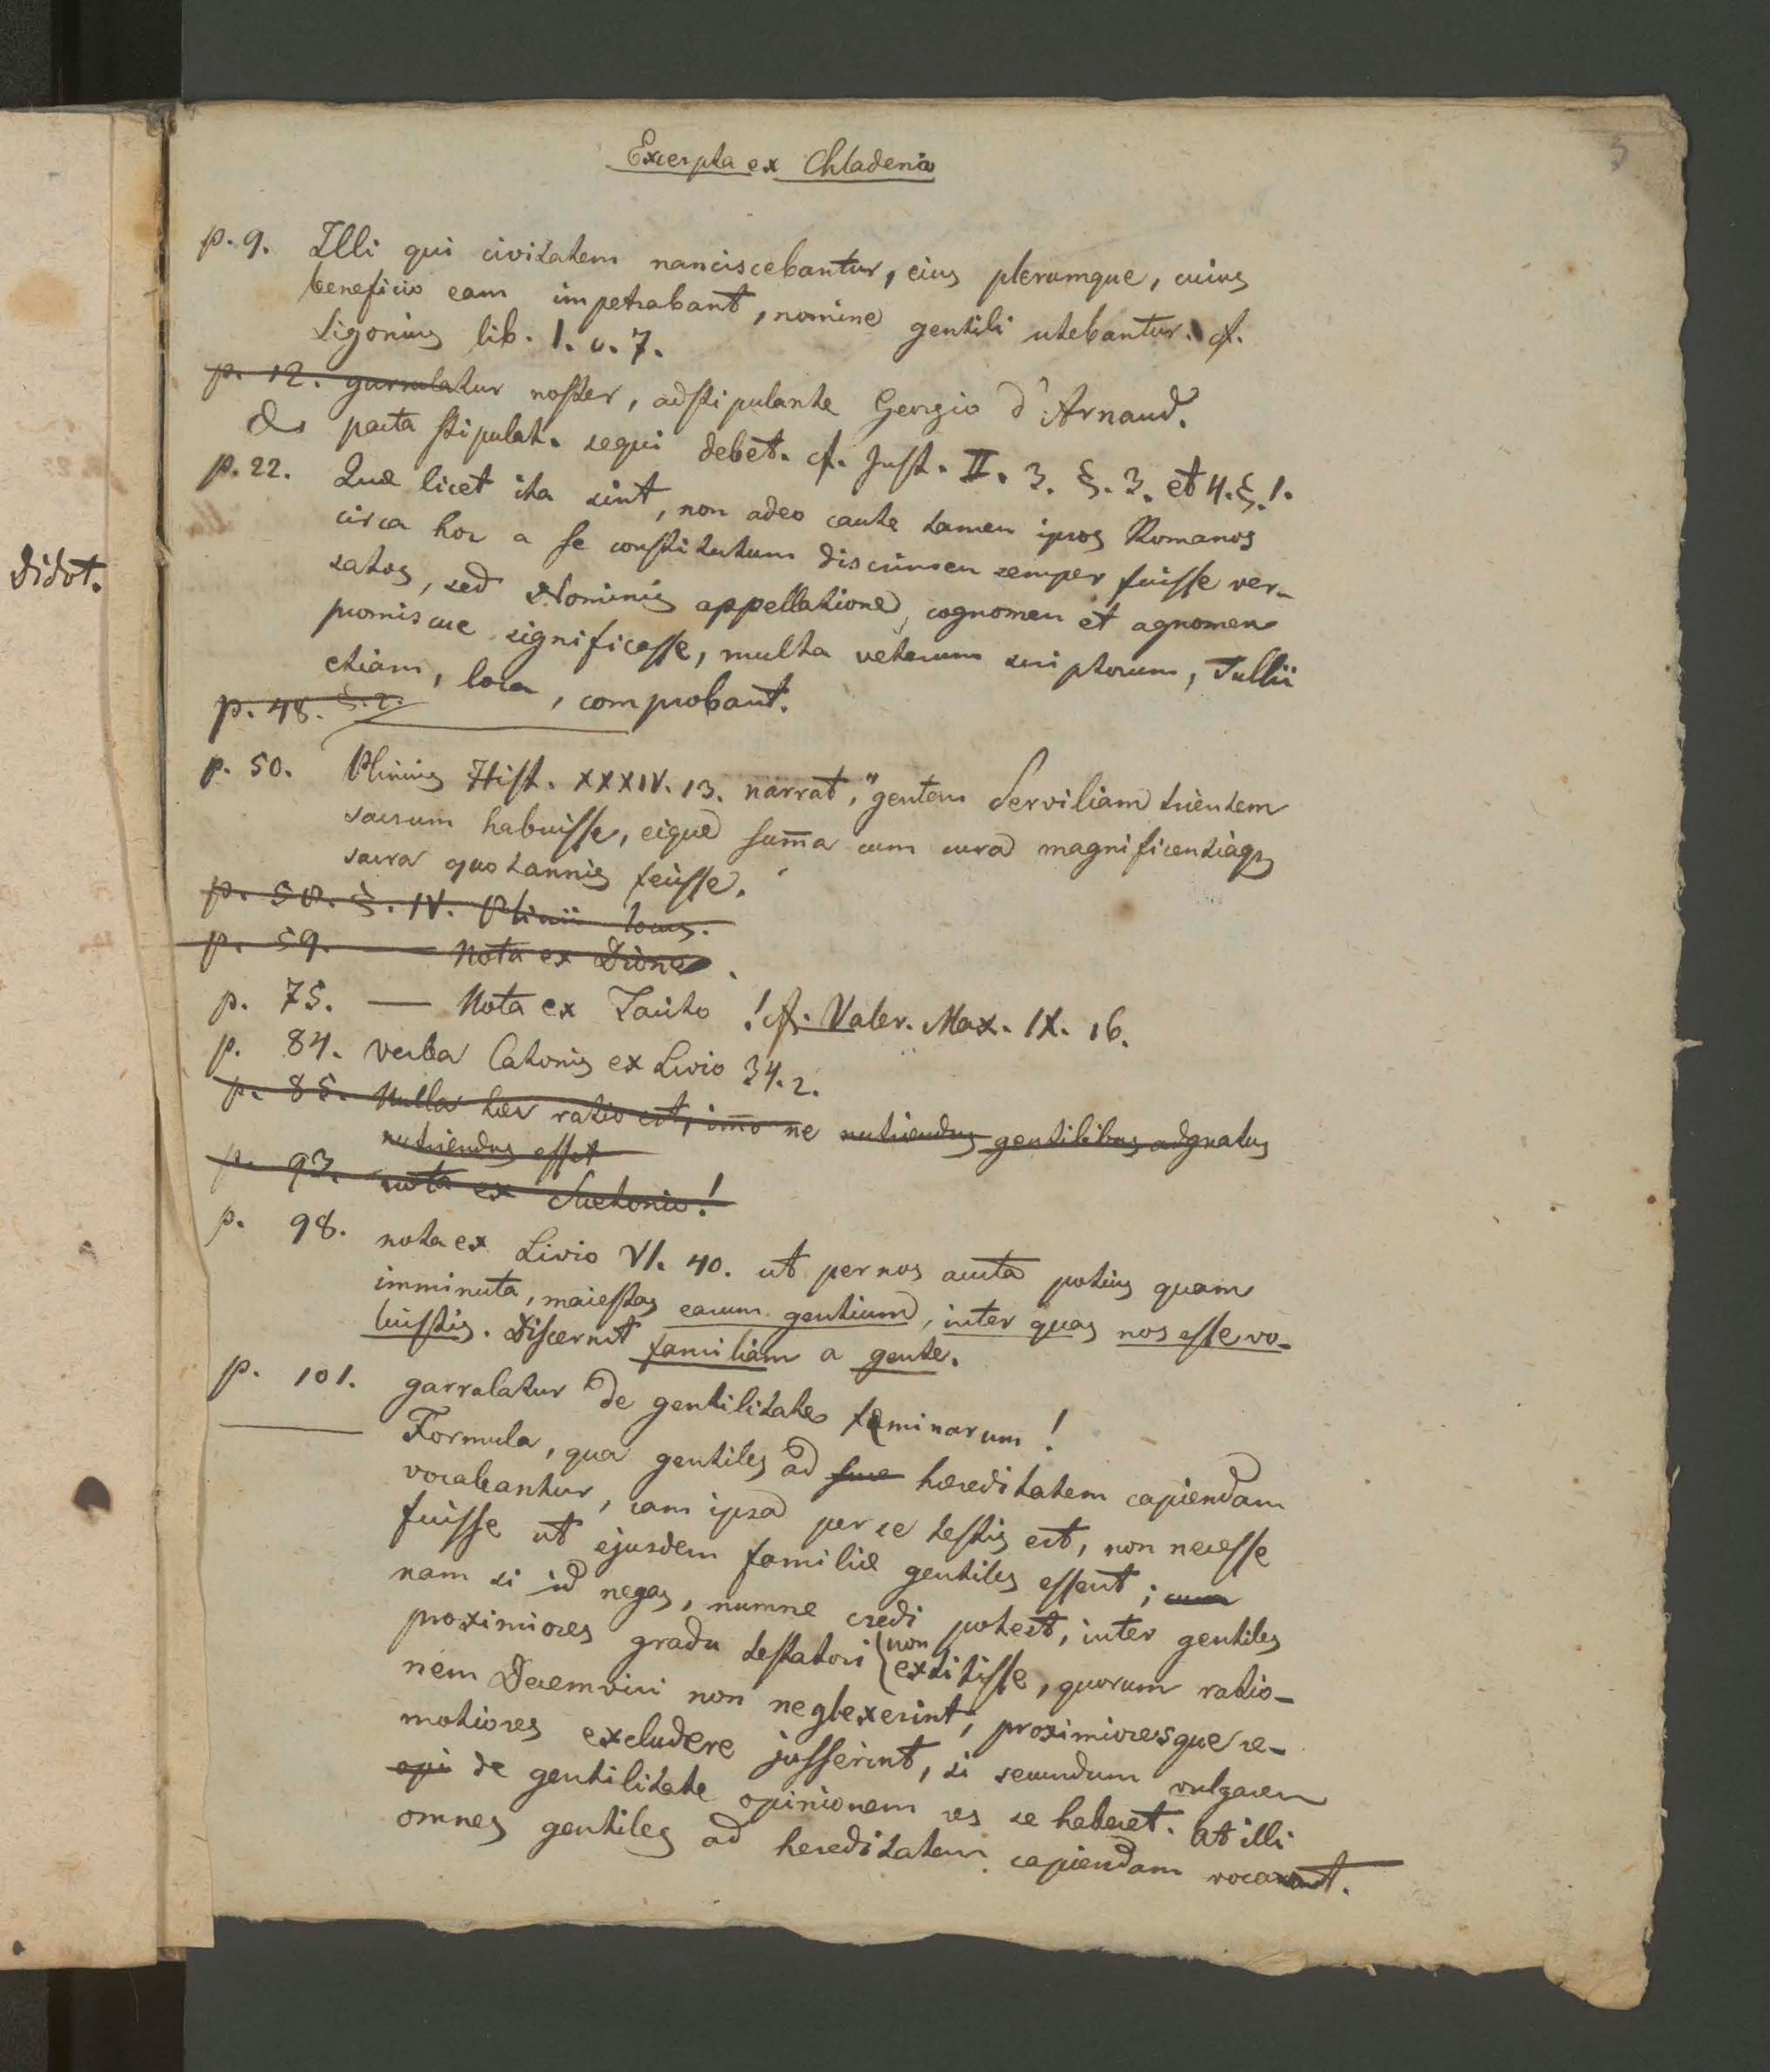 3
Excerpta ex Chladenio
p. 9. Illi qui civitatem nanciscebantur, eius plerumque, cuius
beneficio eam impetrabant, nomine gentili utebantur. cf.
Sigonius lib. 1. c. 7.
p. 12. garrulatur noster, adstipulante Georgio d'Arnaud.
pacta stipulat. sequi debet. cf. Just. II. 3. §. 3. et 4. §. 1.
p. 22. Quæ licet ita sint, non adeo caute tamen ipsos Romanos
circa hoc a se constitutum discrimen semper fuisse ver-
satos, sed Nominis appellatione, cognomen et agnomen
promiscue significasse, multa veterum scriptorum, Tullii
etiam, loca, comprobant.
p. 48. §. 2.
p. 50. Plinius Hist. XXXIV. 13. narrat, "gentem Serviliam trientem
sacrum habuisse, eique sum̄a cum cura magnificentiaq;
sacra quotannis fecisse.
p. 50. §. IV. Plinii locus.
p. 59. — Nota ex Dione.
p. 75. — Nota ex Tacito! cf. Valer. Max. IX. 16.
p. 84. verba Catonis ex Livio 34. 2.
p. 85. Nulla hæc ratio est, im̄o ne nutriendus gentilibus adgnatus
nutriendus esset
p. 93. nota ex Suetonio!
p. 98. nota ex Livio VI. 40. ut per nos aucta potius quam
imminuta, maiestas earum gentium, inter quas nos esse vo-
luistis. Discernit familiam a gente.
p. 101. garralatur de gentilitate feminarum!
Formula, qua gentiles ad hereditatem capiendam
vocabantur, jam ipsa per se testis est, non necesse
fuisse ut ejusdem familiæ gentiles essent; cum
nam si id negas, numne credi potest, inter gentiles
proximiores gradu testatori non extitisse, quorum ratio-
nem Decemviri non neglexerint, proximioresque re-
motiores excludere jusserint, si secundum vulgarem
opi de gentilitate opinionem res se haberet. At illi
omnes gentiles ad hereditatem capiendam vocarunt.
didot.